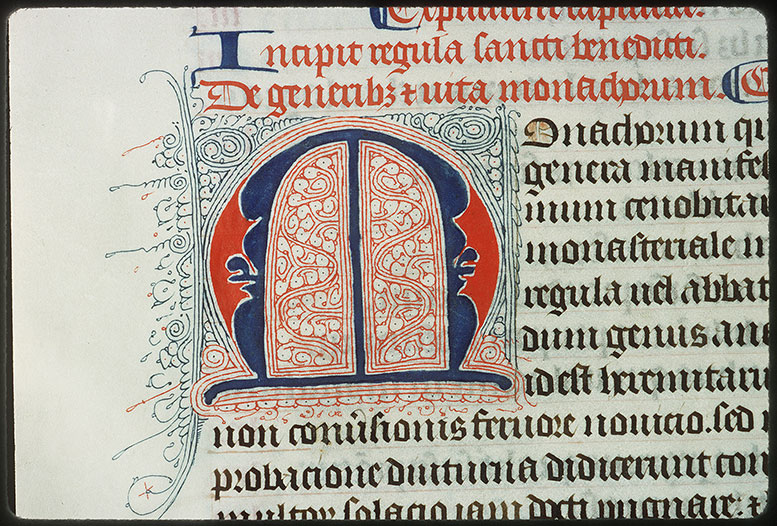 Expliciunt capitula.
Incipit regula sancti benedicti.
De generibꝫ ⁊ uita monachorum. C
M
Onachorum qu
genera manifes
mum cenobitar
monasteriale m
regula uel abbat
dum genus ana
id est heremitaru
non conũsionis feruore nouicio. sed
probacione diuturna didicerunt con
multor solacio iam docti pugnare: ⁊